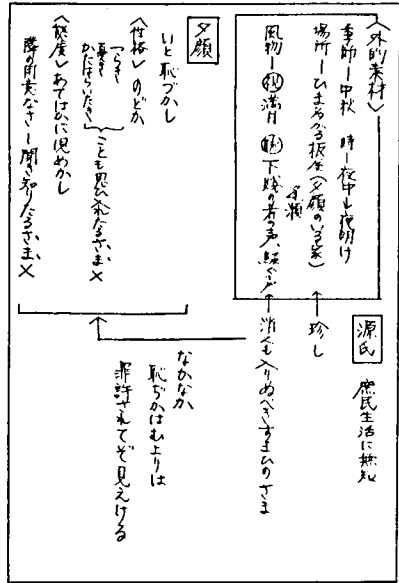 〈外的素材〉
季節―中秋 時―夜中→夜明け
場所―ひま多かる板屋(夕顔のいる家)
風物― 視 満月 聴 下賤の者の声、
珍し
源氏
庶民生活に無知
消えも入りぬべきすまひのさま
夕顔
いと恥づかし
〈性格〉のどか
つらき
憂き
かたはらいたき
ことも思ひ入れたるさま×
〈態度〉あてはかに児めかし
隣の用意なさ―聞き知りたるさま×
なかなか
恥ぢかかはむよりは
罪許されてぞ見えける